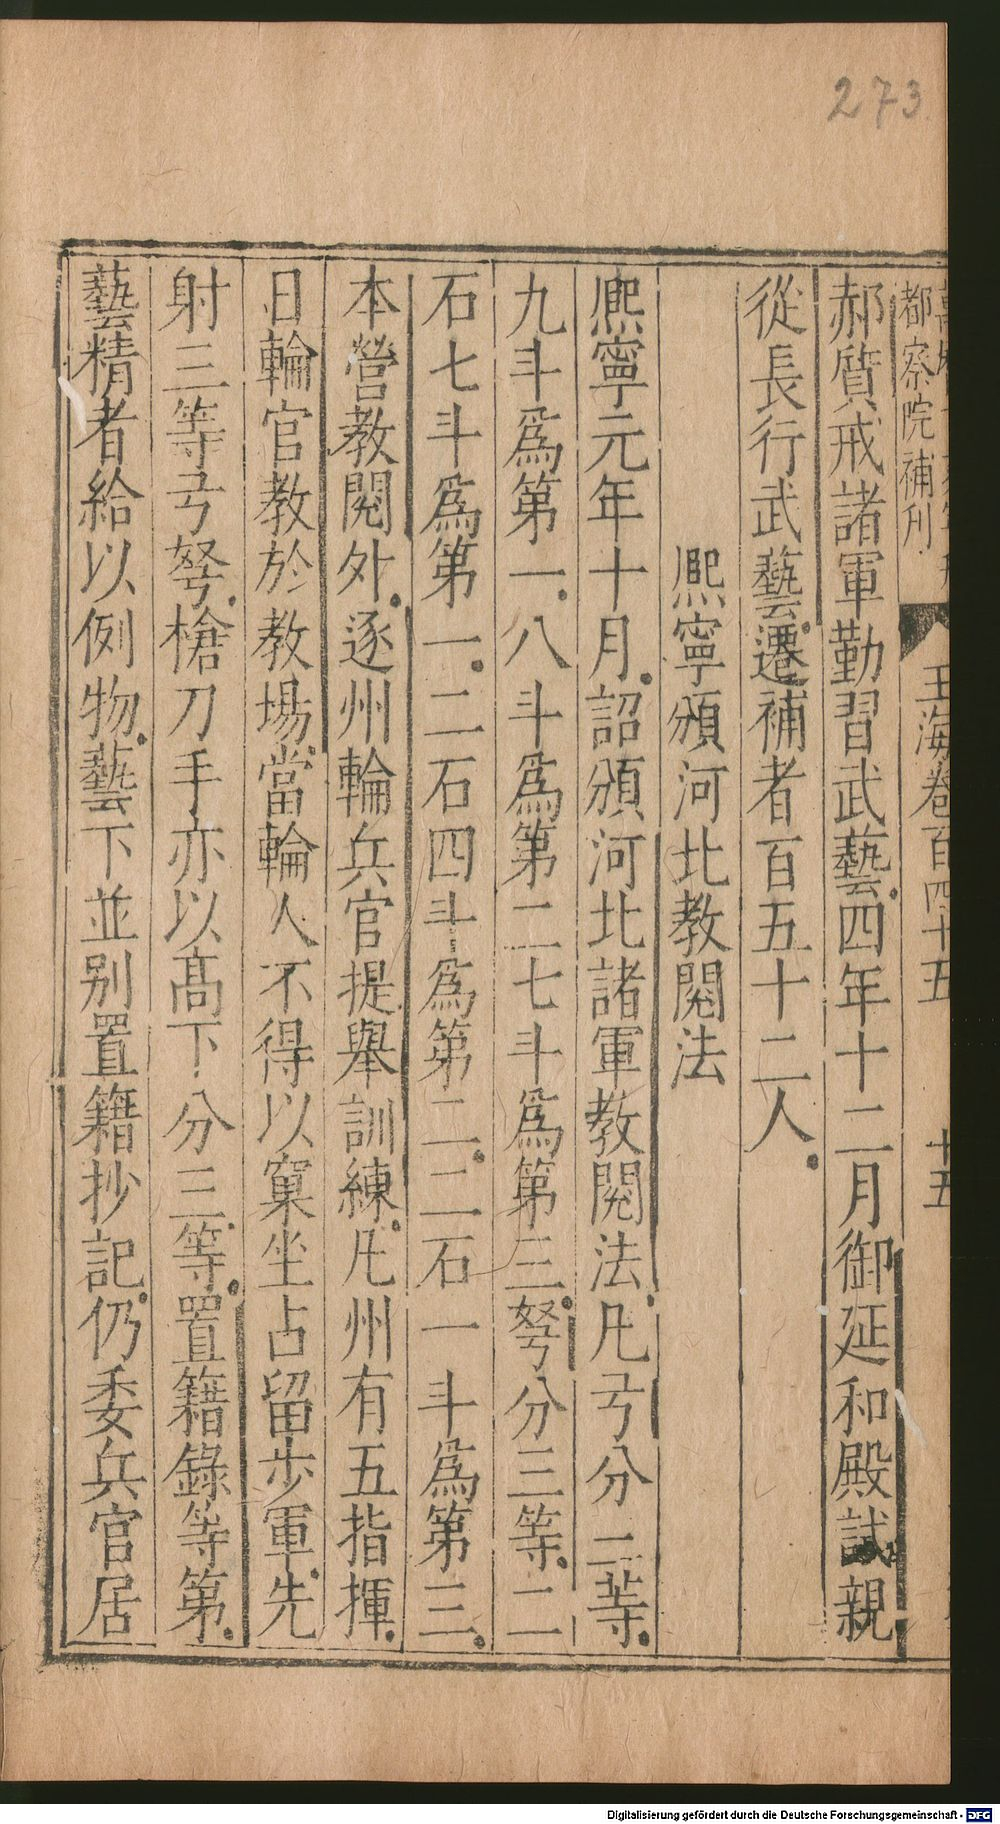 273
都察院補刊
玉海卷百四十五 十五
郝質戒諸軍勤習武藝四年十二月御延和殿試親
從長行武藝遷補者百五十二人
熈寧頒河北教閱法
熈寧元年十月詔頒河北諸軍教閱法凡弓分三等
九斗爲第一八斗爲第二七斗爲第三弩分三等二
石七斗爲第一二石四斗爲第二二石一斗爲第三
本營教閱外逐州輪兵官提舉訓練凡州有五指揮
日輪官教於教場當輪人不得以窠坐占留步軍先
射三等弓弩槍刀手亦以髙下分三等置籍錄等第
藝精者給以例物藝下並別置籍抄記仍委兵官居
Digitalisierung gefördert durch die Deutsche Forschungsgemeinschaft - DFG